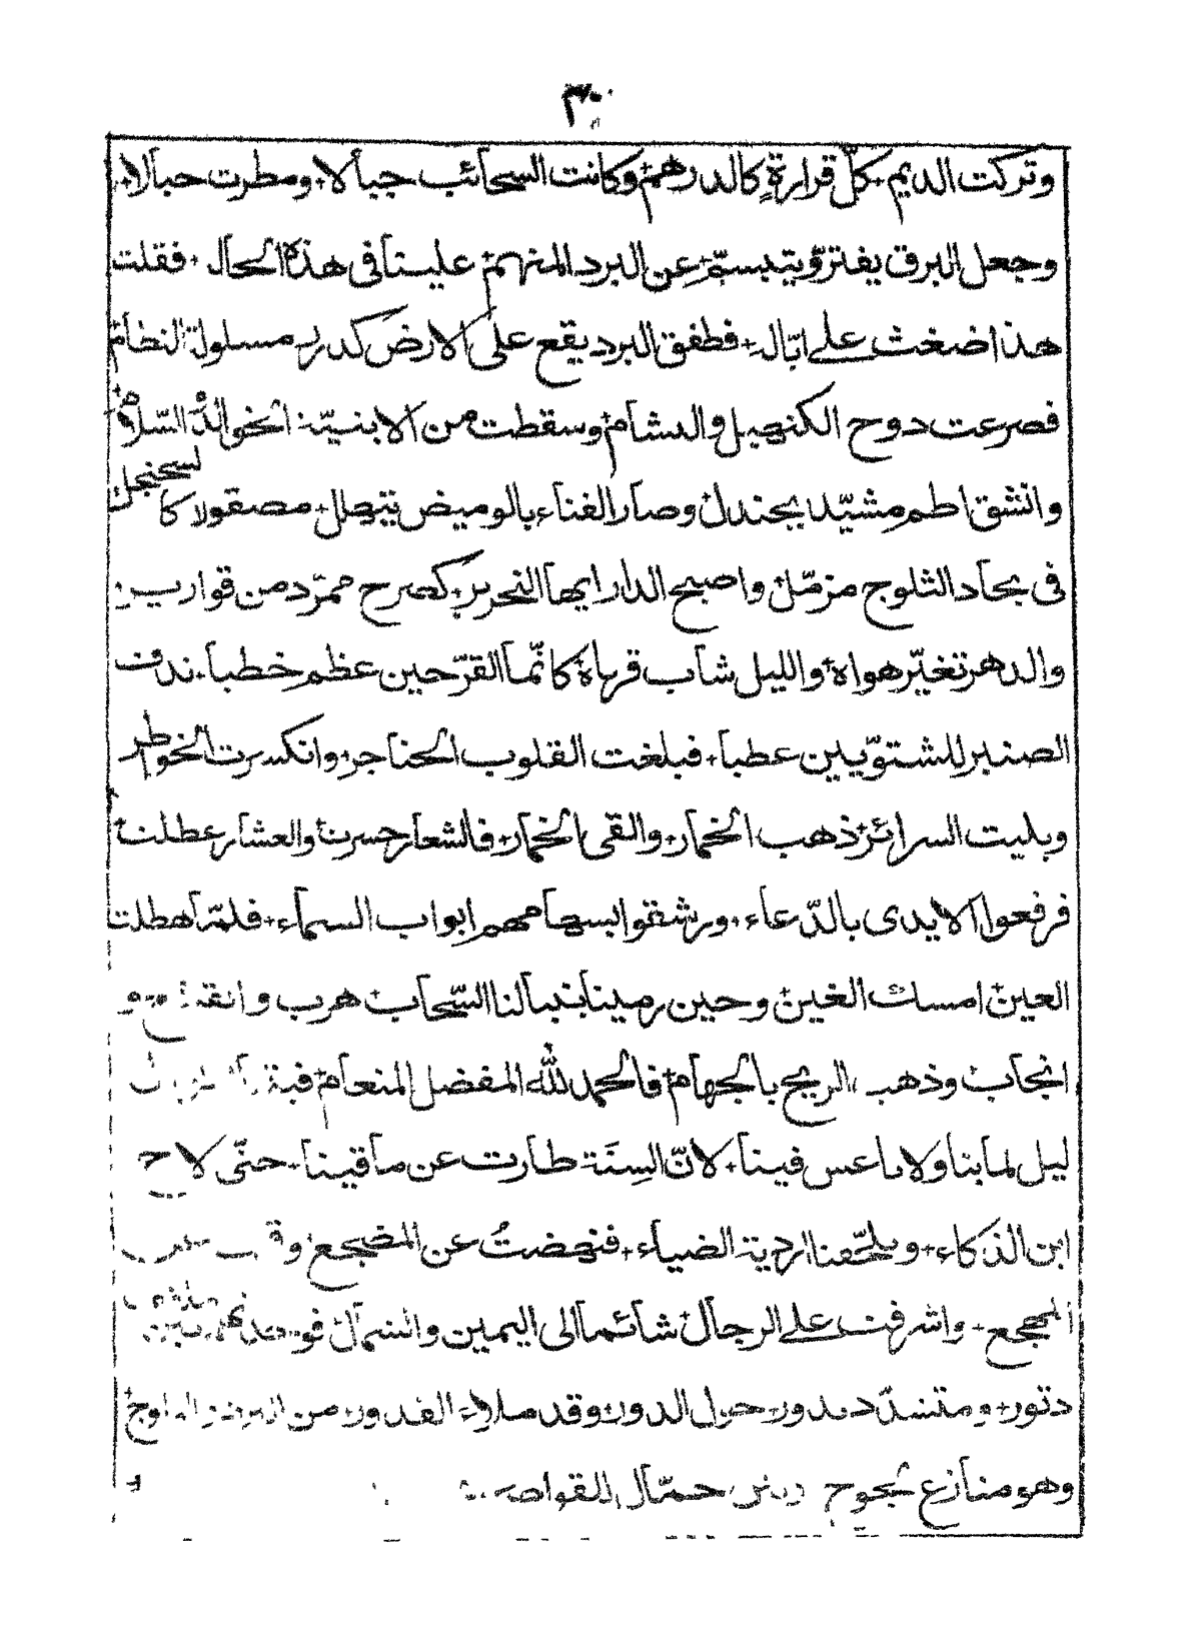 ٣٠
وتركت الديم + كلّ قرارةٍ كالدرهم + وكانت السحائب جبالا + ومطرت حبالا +
وجعل البرق يفترّ ويتبسّم + عن البرد المنهم + علينا فى هذه الحال + فقلت
هذا ضغث على ابّالة + فطفق البرد يقع على الارض كدرر مسلولة النظام +
فصرعت دوح الكنهبل والبشام + وسقطت من الابنيّة الخوالد السّلام +
وانشق اطم مشيّد بجندل + وصار الفناء بالوميض يتهلل + مصقولا كالسجنجل
فى بجاد الثلوج مزمّل + واصبح الدار ايها النحرير + كصرح ممرّد من قوارير +
والدهر تغيّر هواه + والليل شاب قرباه + كانّما القرّ حين عظم خطبا + ندفت
الصنبر للشتويّين عطبا + فبلغت القلوب الحناجر + وانكسرت الخواطر
وبليت السرائر + ذهب الخمار + والقى الخمار + فالشعار حسرت + والعشار عطلت +
فرفعوا الايدى بالدّعاء + ورشقوا بسهامهم ابواب السماء + فلمّا هطلت
العين + امسك الغين + وحين رمينا بنبالنا السّحاب + هرب و
انجاب + وذهب الريح بالجهام + فالحمد لله المفضل المنعام +
ليل لما بتنا ولا ناعس فينا + لانّ السِنَة طارت عن ماقينا + حتّى لاح
ابن الذكاء + ويلحّفنا اردية الضياء + فنهضتُ عن المضجع +
المهجع + واشرفت على الرجال + شائما الى اليمين والشمال +
دثور + ومتشدّد يدور + حول الدور + وقد ملاء الغدور + من
وهو منازع حمّال